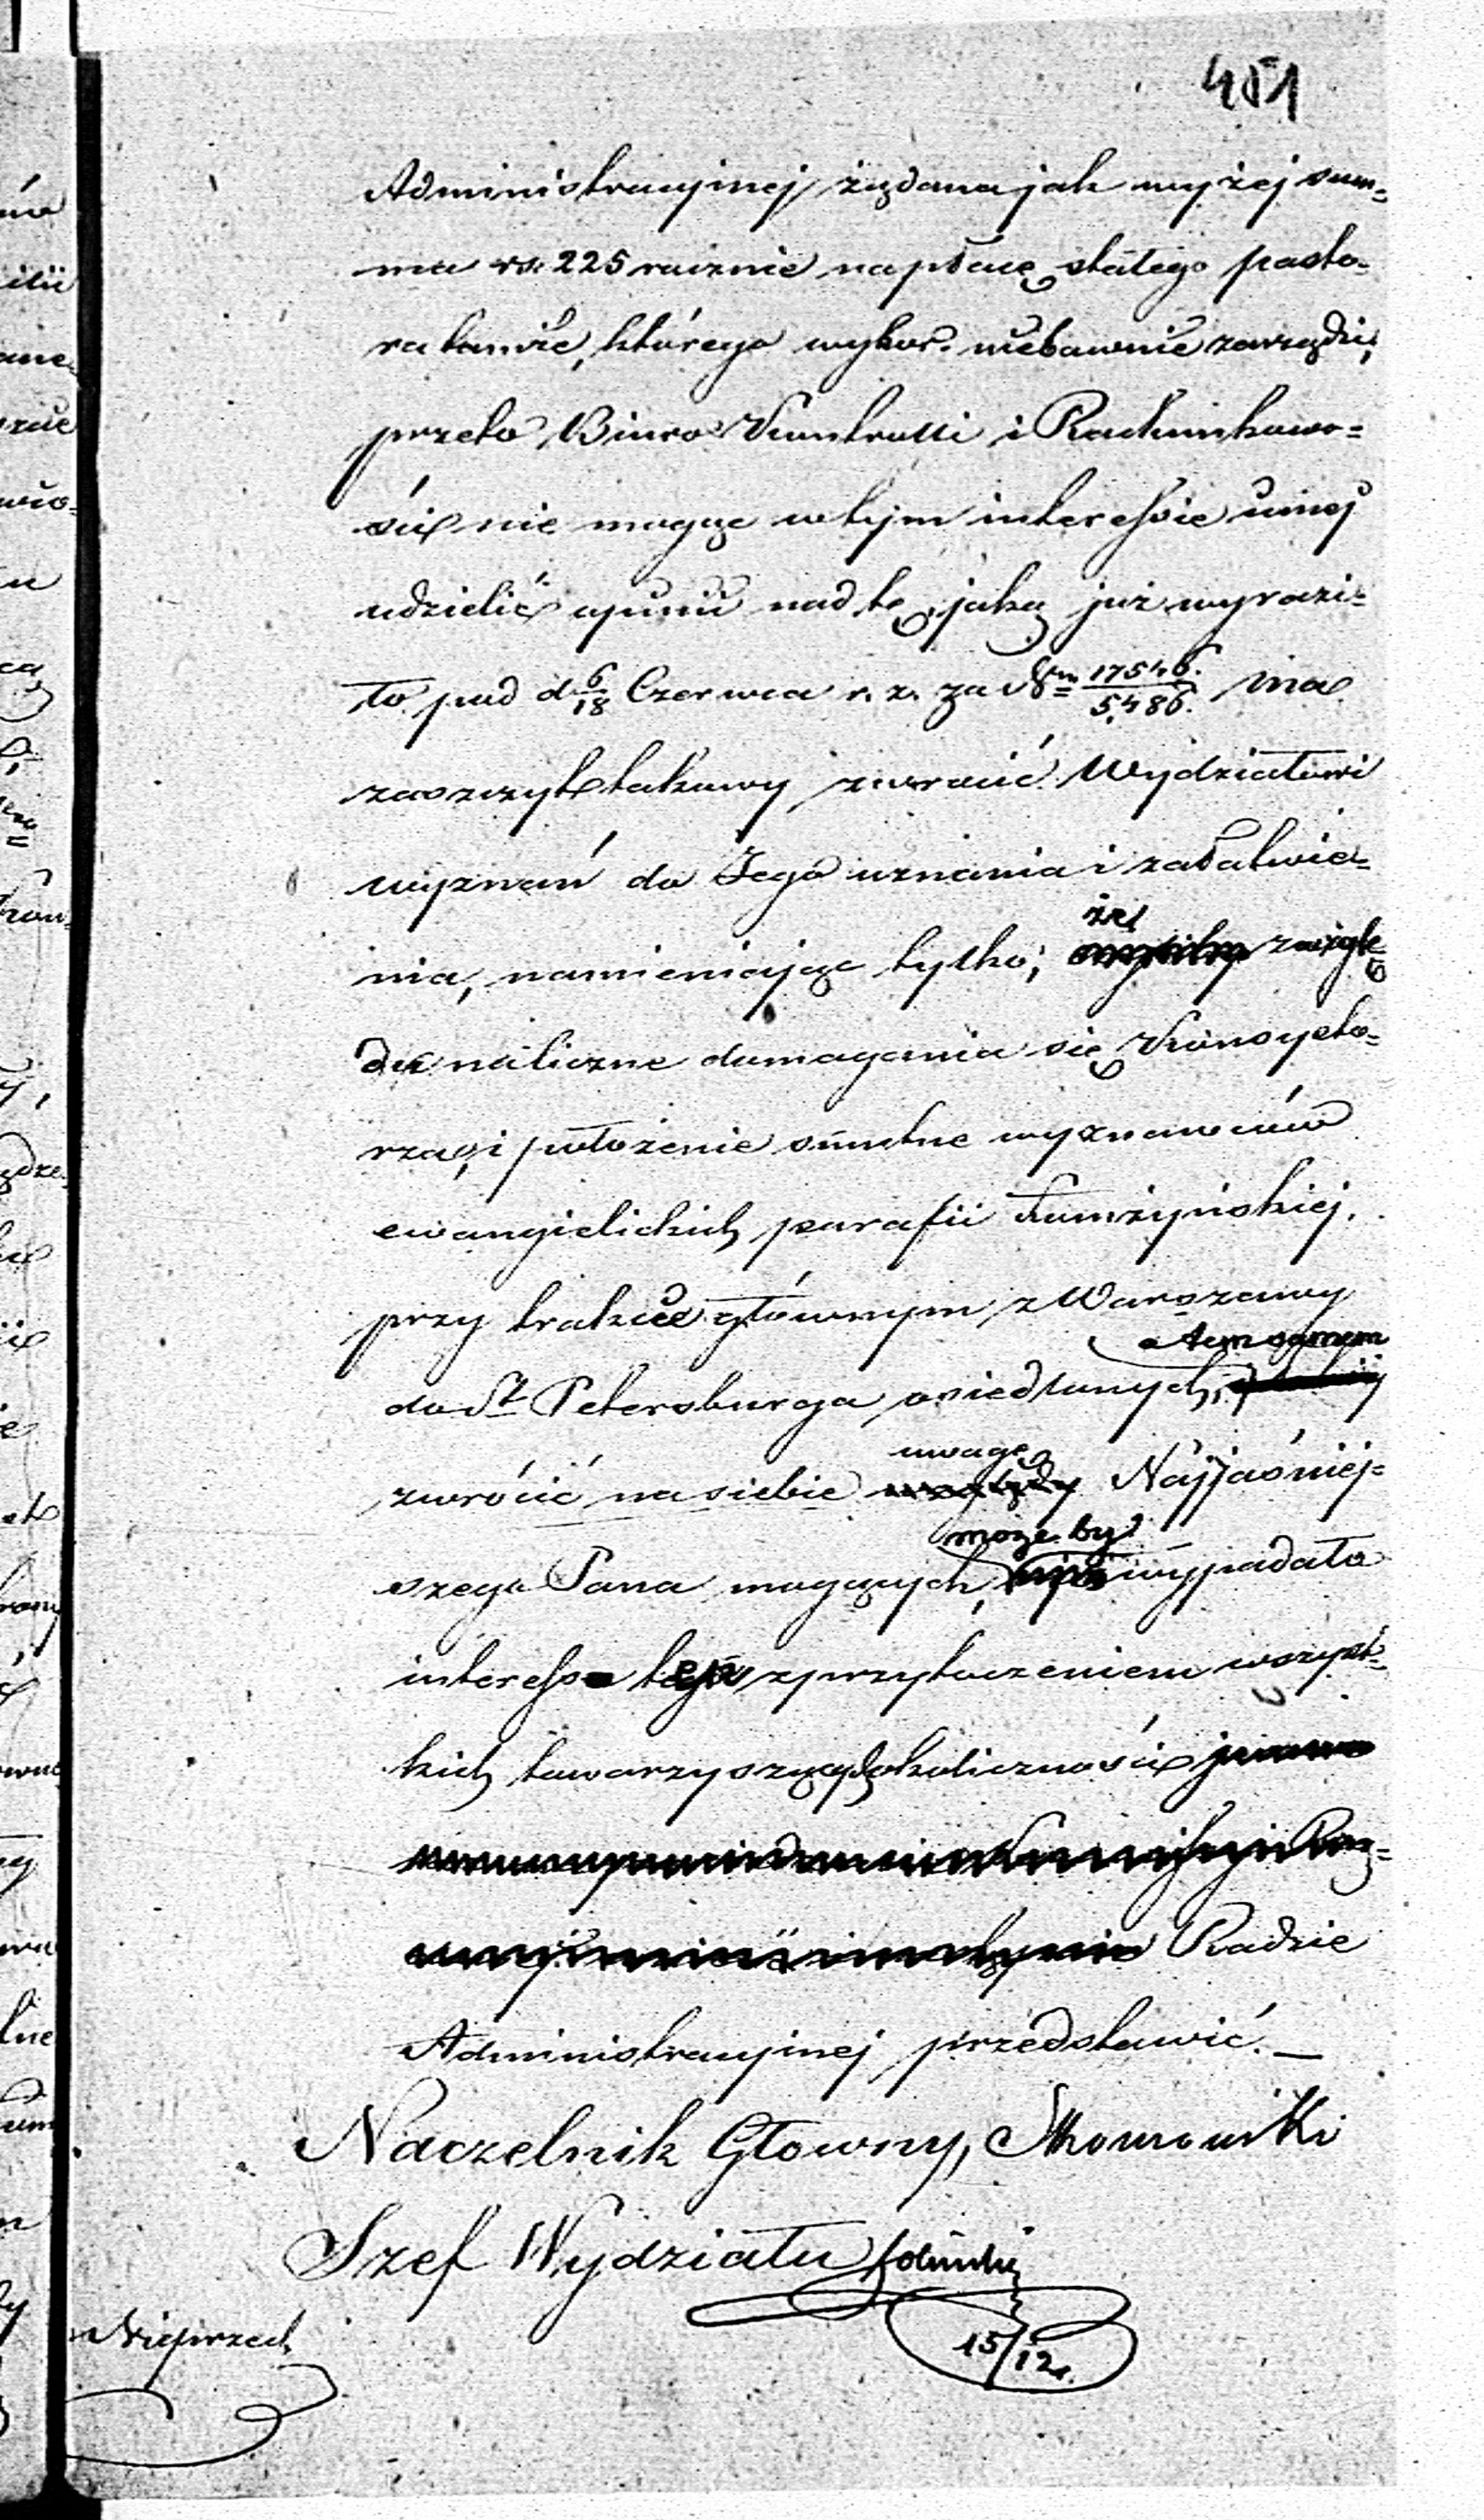 451
Administracyjnej żądana jak wyżej sum=
ma rs. 225 rocznie na płacę stałego pasto-
ra tamże, którego wybor niebawnie zarządzi,
przeto Biuro Kontrolli i Rachunkowo=
ści nie mogąc w tym interessie innej
udzielić opinii nad tę, jaką już wyrazi=
ło pod d. 6/18 Czerwca r. z. za Nm 17546/5486. ma
zaszczyt takowy zwrócić Wydziałowi
wyznań do Jego uznania i załatwie=
nia, namieniając tylko, że zwzglę
du na liczne domagania się Konsysto=
rza, i położenie smutne wyznawców
ewangielickich parafii Łomżyńskiej,
przy trakcie głównym z Warszawy
a tem samem
do St. Petersburga osiedlonych,
uwagę
zwrócić na siebie względy Najjaśniej=
może by
szego Pana mogących, wypadało
interess ten z przytoczeniem wszyst=
kich towarzyszących okoliczności
Radzie
Administracyjnej przedstawić. —
Naczelnik Głowny,
Szef Wydziału
15/12.
Nieprzech